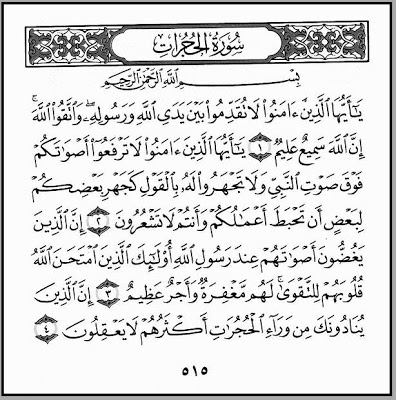 سُورَةُ الْحُجُرَاتِ
بِسْمِ اللَّهِ الرَّحْمَٰنِ الرَّحِيمِ
يَٰٓأَيُّهَا الَّذِينَ ءَامَنُوا۟ لَا تُقَدِّمُوا۟ بَيْنَ يَدَىِ اللَّهِ وَرَسُولِهِۦ ۖ وَاتَّقُوا۟ اللَّهَ ۚ
إِنَّ اللَّهَ سَمِيعٌ عَلِيمٌ ١ يَٰٓأَيُّهَا الَّذِينَ ءَامَنُوا۟ لَا تَرْفَعُوٓا۟ أَصْوَٰتَكُمْ
فَوْقَ صَوْتِ النَّبِىِّ وَلَا تَجْهَرُوا۟ لَهُۥ بِالْقَوْلِ كَجَهْرِ بَعْضِكُمْ
لِبَعْضٍ أَن تَحْبَطَ أَعْمَٰلُكُمْ وَأَنتُمْ لَا تَشْعُرُونَ ٢ إِنَّ الَّذِينَ
يَغُضُّونَ أَصْوَٰتَهُمْ عِندَ رَسُولِ اللَّهِ أُو۟لَٰٓئِكَ الَّذِينَ امْتَحَنَ اللَّهُ
قُلُوبَهُمْ لِلتَّقْوَىٰ ۚ لَهُم مَّغْفِرَةٌ وَأَجْرٌ عَظِيمٌ ٣ إِنَّ الَّذِينَ
يُنَادُونَكَ مِن وَرَآءِ الْحُجُرَٰتِ أَكْثَرُهُمْ لَا يَعْقِلُونَ ٤
٥١٥